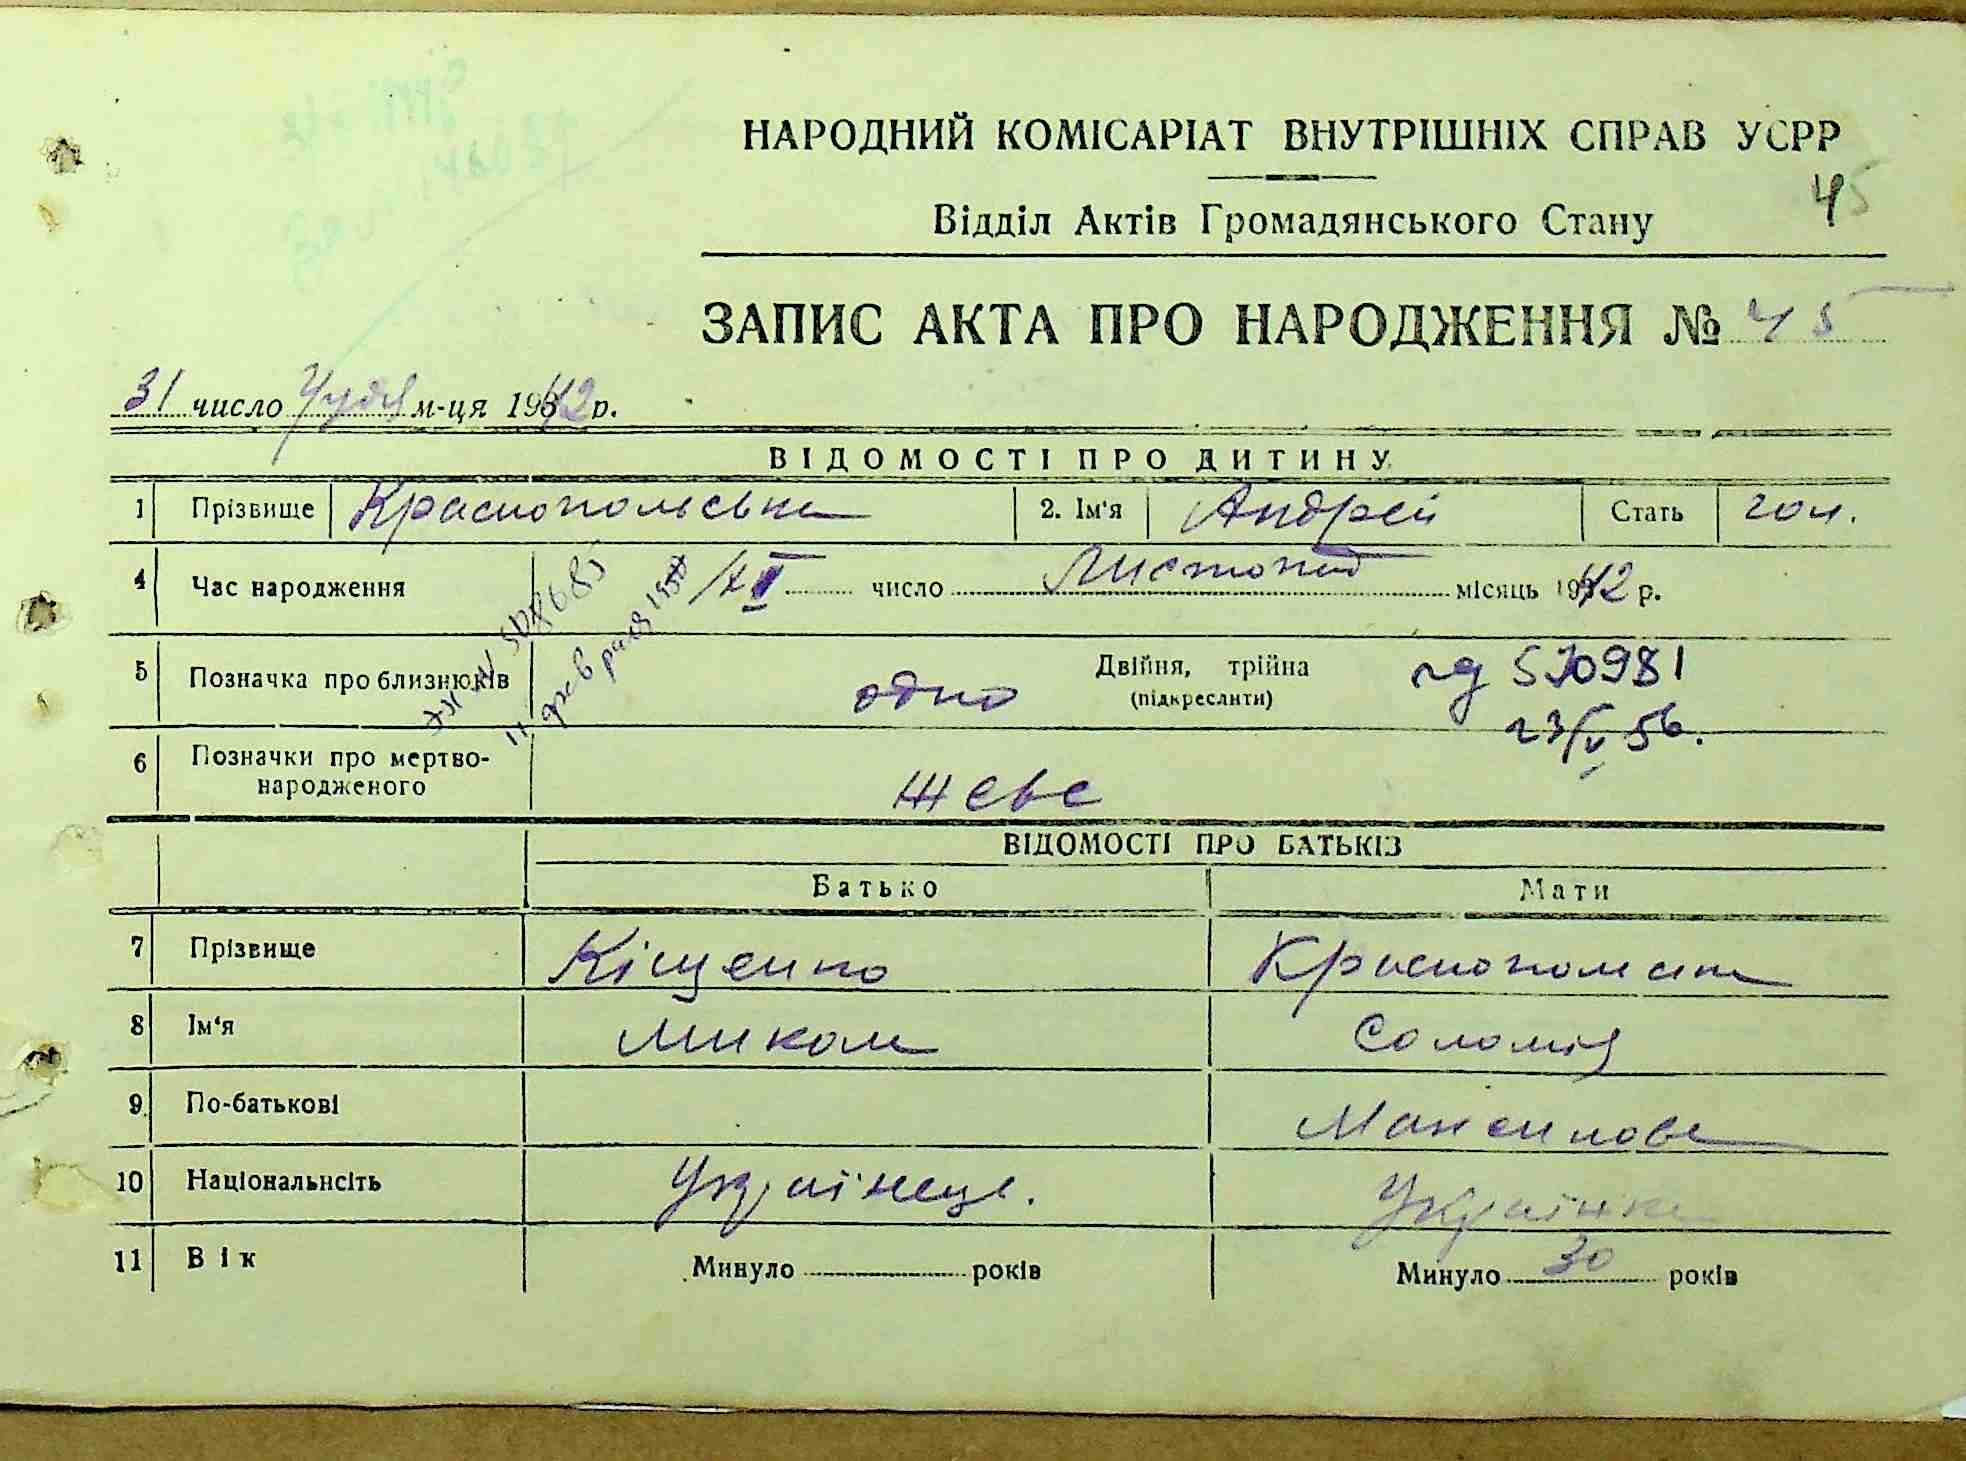 НАРОДНИЙ КОМІСАРІАТ ВНУТРІШНІХ СПРАВ УСРР
45
Відділ Актів Громадянського Стану
ЗАПИС АКТА ПРО НАРОДЖЕННЯ № 45
31 число м-ця 1942 р.
ВІДОМОСТІ ПРО ДИТИНУ
1 Прізвище Краснопольська 2. Ім'я Андрей Стать чол.
4 Час народження число Листопад місяць 1942 р.
5 Позначка про близнюків одно Двійня, трійна (підкреслити) 570981
23/V 56.
6 Позначки про мертво-
народженого живе
ВІДОМОСТІ ПРО БАТЬКІВ
Батько Мати
7 Прізвище Кіщенко Краснопольська
8 Ім'я Микола Соломія
9. По-батькові Максимовна
10 Національнсіть Українець. Українка
11 Вік Минуло років Минуло 30 років